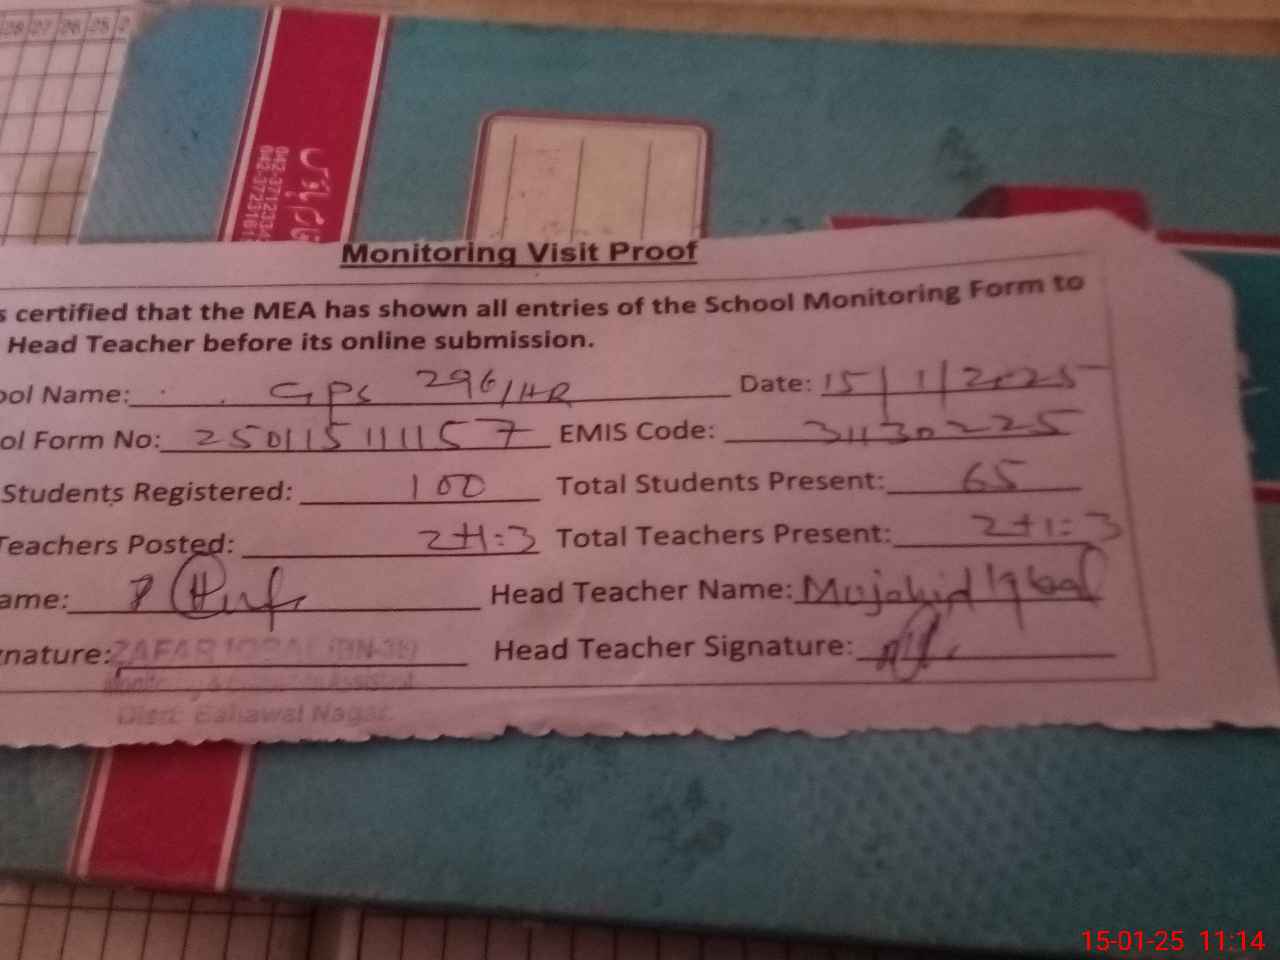 28 27 26 25 2
042-3712334
042-3723161
Monitoring Visit Proof
s certified that the MEA has shown all entries of the School Monitoring Form to
Head Teacher before its online submission.
ool Name: GPS 296/HR Date: 15/1/2025
ol Form No: 250115111157 EMIS Code: 31130225
Students Registered: 100 Total Students Present: 65
Teachers Posted: 2+1=3 Total Teachers Present: 2+1=3
ame: Head Teacher Name: Mujahid Iqbal
nature: ZAFAR IQBAL Head Teacher Signature:
Monitoring & Evaluation Assistant
Distt. Bahawal Nagar.
15-01-25 11:14